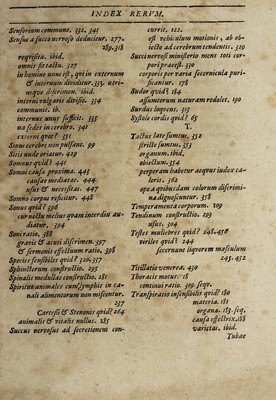 INDEX RERVM.
Sensorium commune. 332. 341
Sensus a succo nervoso deducitur. 277.
289.318
requisita. ibid.
omnis est tactu. 327
in homine unus est, qui in externum
& internum dividitur. 333. utri-
usque discrimen. ibid.
interni vulgaris divisio. 334
communis. ib.
internus unus sufficit. 335
ua sedes in cerebro. 341
externi quot? 351
Sinus cerebri non pulsant. 99
Sitis unde oriatur. 429
Somnus quid? 441
Somni causa proxima. 443
causae mediatae. 444
usus & necessitas. 447
Somno corpus reficitur. 448
Sonus quid? 390
cur noctu melius quam interdiu au-
diatur. 394
Soni ratio. 388
gravis & acuti discrimen. 397
& sermonis effectuum ratio. 398
Species sensibiles quid? 320.357
Sphincterum constructio. 295
Spinalis medullae constructio. 281
Spiritus animales cum lymphis in ca-
nali alimentorum non miscentur.
237
Cartesii & Stenonis quid? 264
animalis & vitalis nullus. 285
Succus nervosus ad secretionem con-
currit. 122.
est vehiculum motionis, ab ob-
iecto ad cerebrum tendentis. 329
Succi nervosi ministerio mens toti cor-
pori praeest. 330
corporis per varia secernicula puri-
ficantur. 178
Sudor quid? 184
assumtorum naturam redolet. 190
Surdus loquens. 315
Systole cordis quid? 65
T.
Tactus late sumtus. 352
stricte sumtus. 353
organum. ibid.
obiectum. 354
perperam habetur aequus index ca-
loris. 362
ope a quibusdam colorum discrimi-
na dignoscuntur. 358
Temperamenta corporum. 209
Tendinum constructio. 293
usus. 304
Testes muliebres quid? 245.450
viriles quid? 244
secernunt liquorem masculum
245.452
Titillatio venerea. 430
Thoracis motus. 18
continui ratio. 309. seqv.
Transpiratio insensibilis quid? 180
materia. 181
organa. 183. seq.
causa effectrix. 188
varietas. ibid.
Tubae